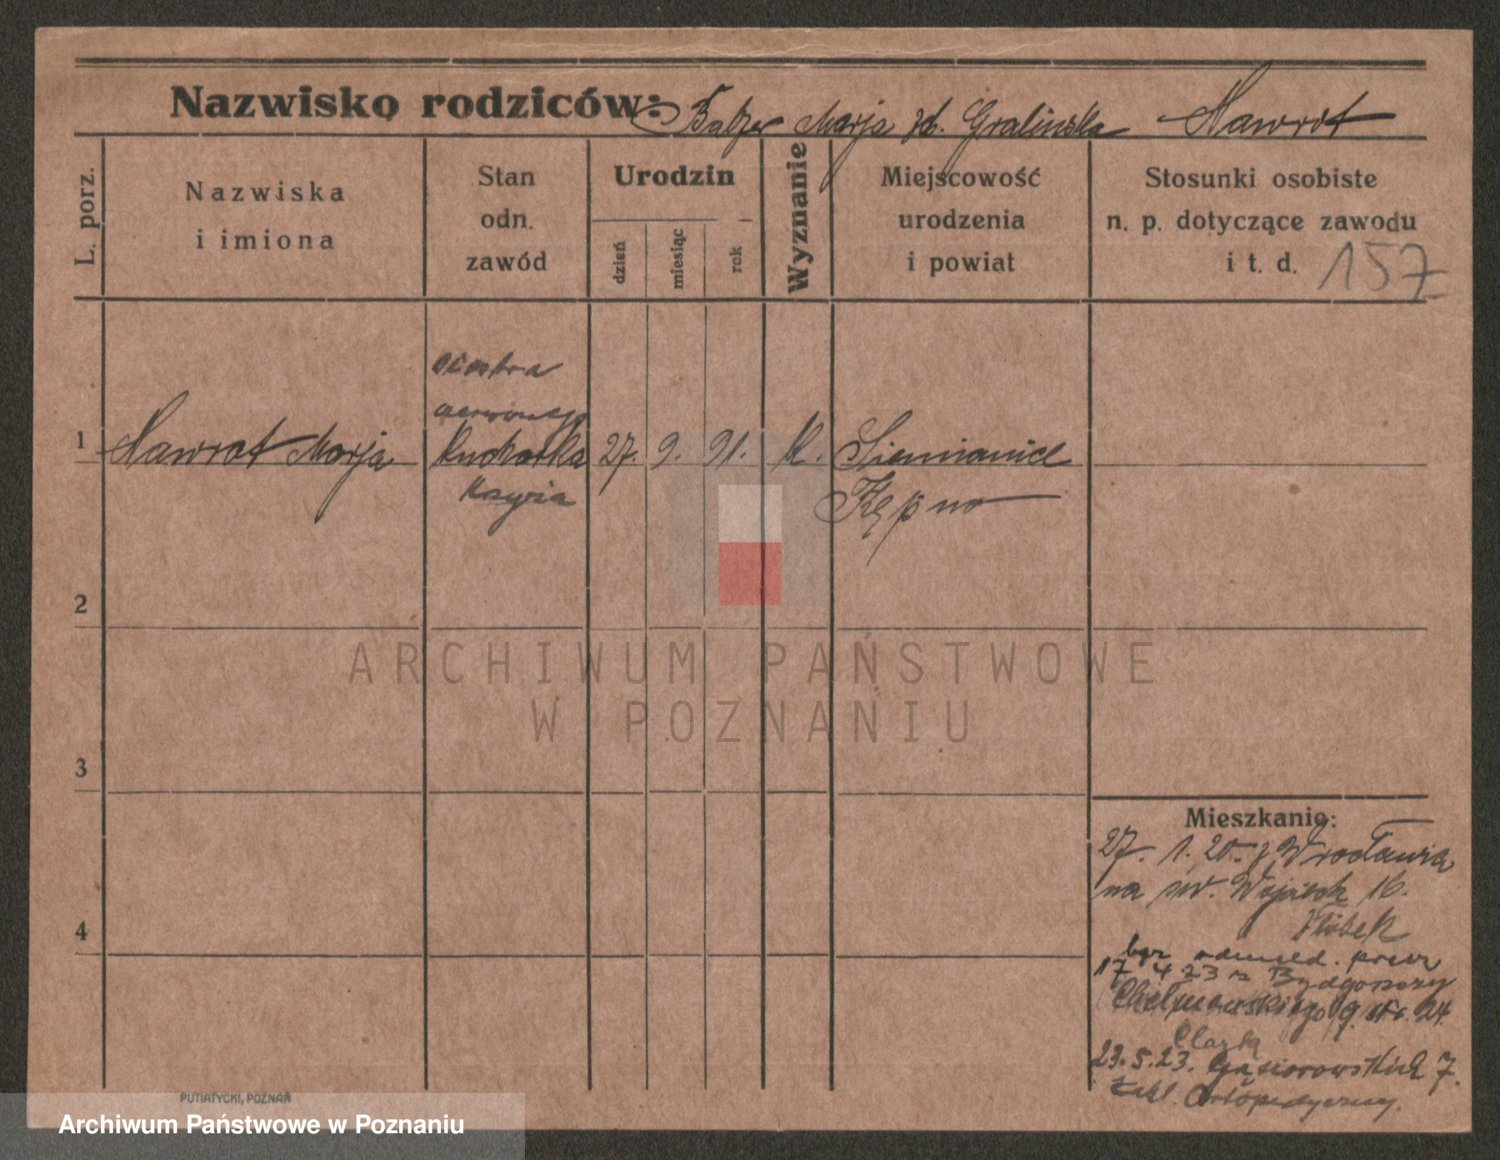 Nazwisko rodziców: Balzer Marja zd. Gralinska Nawrot
L. porz.
Nazwiska
i imiona
Stan
odn.
zawód
Urodzin
dzień
miesiąc
rok
Wyznanie
Miejscowość
urodzenia
i powiat
Stosunki osobiste
n. p. dotyczące zawodu
i t. d. 157
siostra
czerwonego
1 Nawrot Marja Kucharka 27. 9. 91. k. Siemianice
Krzyża Kępno
2
ARCHIWUM PAŃSTWOWE
W POZNANIU
3
Mieszkanie:
27. 1. 20. z Wrocławia
na św. Wojciech 16.
4
Żłóbek
bez odmeld. przez
17 4 23 z Bydgoszczy
Chełmońskiego 9 str. 24
23.5.23. Gąsiorowskich 7.
Zakl. Ortopedyczny.
PUTIATYCKI, POZNAŃ
Archiwum Państwowe w Poznaniu